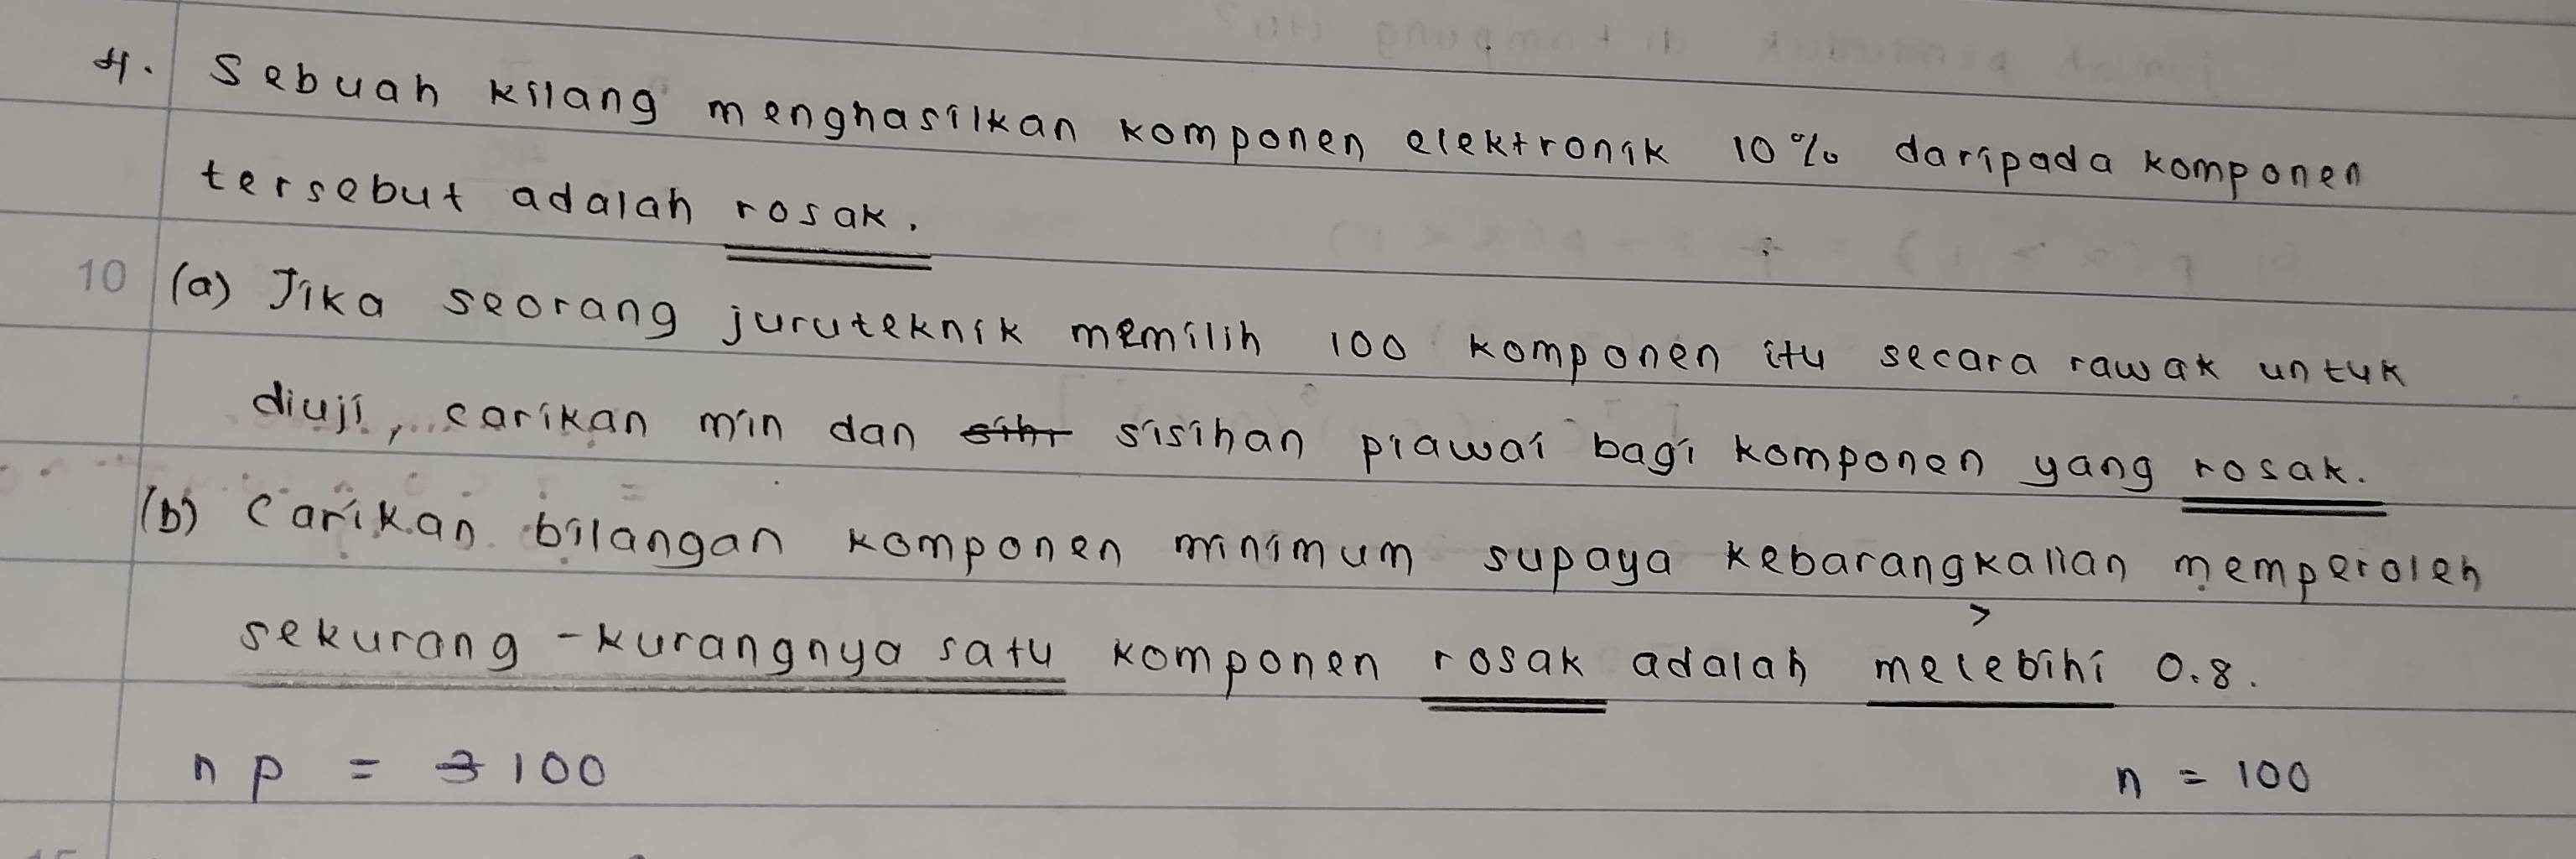 4. Sebuah kilang menghasilkan komponen elektronik 10% daripada komponen
tersebut adalah rosak.
10 (a) Jika seorang juruteknik memilih 100 komponen itu secara rawak untuk
diuji, carikan min dan sisihan piawai bagi komponen yang rosak.
(b) Carikan bilangan komponen minimum supaya kebarangkalian memperoleh
>
sekurang-kurangnya satu komponen rosak adalah melebihi 0.8.
np = 100 n = 100